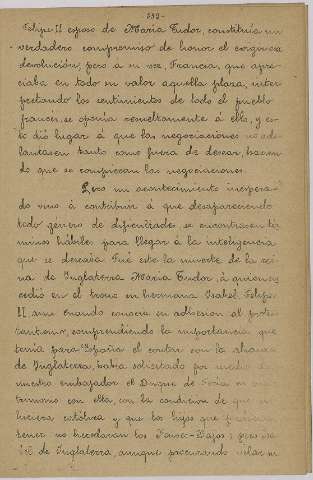 -592-
Felipe II esposo de Maria Tudor, constituia un
verdadero compromiso de honor el exigir la
devolución, pero á su vez, Francia, que apre-
ciaba en todo su valor aquella plaza, inter-
pretando los sentimientos de todo el pueblo
frances, se oponía resueltamente á ello, y es-
to dió lugar á que las negociaciones no ade-
lantasen tanto como fuera de desear, hacien
do que se rompieran las negociaciones.
Pero un acontecimiento inespera-
do vino á contribuir á que desapareciendo
todo género de dificultades se encontrasen tér
minos hábiles para llegar á la inteligencia
que se deseaba. Fué este la muerte de la rei-
na de Inglaterra Maria Tudor, á quien su-
cedió en el trono su hermana Isabel. Felipe
II, aun cuando conocia su adhesion al protes-
tantismo, comprendiendo la importancia que
tenia para España el contar con la alianza
de Inglaterra, habia solicitado por medio de
nuestro embajador el Duque de Feria su ma-
trimonio con ella, con la condicion de que se
hiciera católica y que los hijos que
tener no heredaran los Paises-Bajos; pero
de Inglaterra, aunque procurando